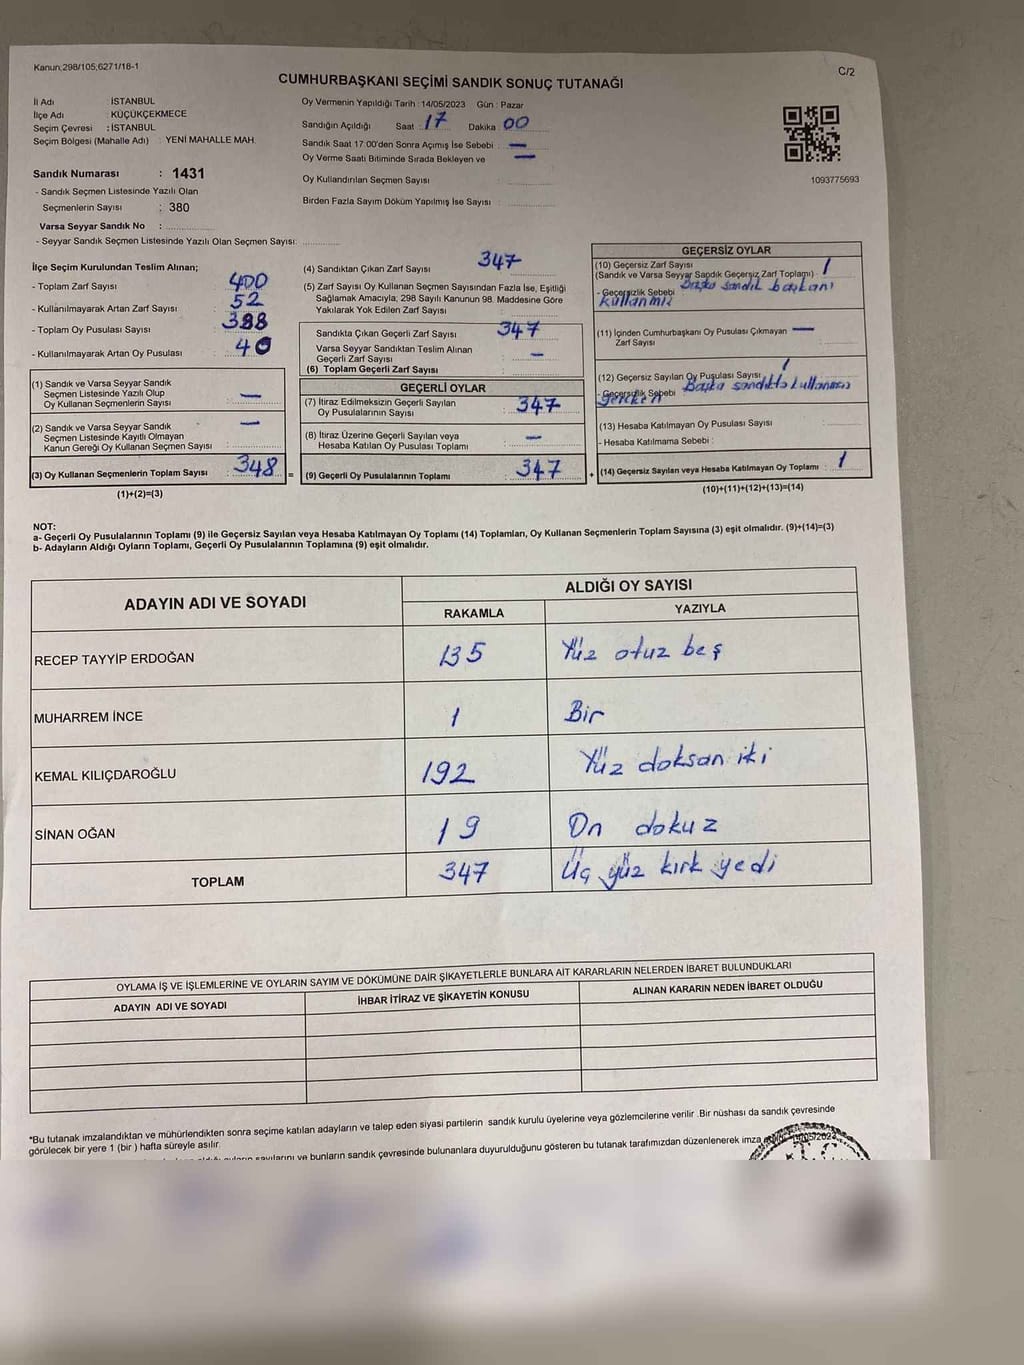 Kanun;298/105;6271/18-1
C/2
CUMHURBAŞKANI SEÇİMİ SANDIK SONUÇ TUTANAĞI
İl Adı : İSTANBUL
İlçe Adı : KÜÇÜKÇEKMECE
Seçim Çevresi : İSTANBUL
Seçim Bölgesi (Mahalle Adı) : YENİ MAHALLE MAH.
Sandık Numarası : 1431
- Sandık Seçmen Listesinde Yazılı Olan
Seçmenlerin Sayısı : 380
Varsa Seyyar Sandık No :
- Seyyar Sandık Seçmen Listesinde Yazılı Olan Seçmen Sayısı:
Oy Vermenin Yapıldığı Tarih : 14/05/2023 Gün : Pazar
Sandığın Açıldığı Saat : 17 Dakika 00
Sandık Saat 17:00'den Sonra Açımış İse Sebebi : —
Oy Verme Saati Bitiminde Sırada Bekleyen ve —
Oy Kullandırılan Seçmen Sayısı :
Birden Fazla Sayım Döküm Yapılmış İse Sayısı :
1093775693
İlçe Seçim Kurulundan Teslim Alınan;
- Toplam Zarf Sayısı : 400
- Kullanılmayarak Artan Zarf Sayısı : 52
- Toplam Oy Pusulası Sayısı : 388
- Kullanılmayarak Artan Oy Pusulası : 40
(1) Sandık ve Varsa Seyyar Sandık
Seçmen Listesinde Yazılı Olup
Oy Kullanan Seçmenlerin Sayısı : —
(2) Sandık ve Varsa Seyyar Sandık
Seçmen Listesinde Kayıtlı Olmayan
Kanun Gereği Oy Kullanan Seçmen Sayısı : —
(3) Oy Kullanan Seçmenlerin Toplam Sayısı : 348 =
(1)+(2)=(3)
(4) Sandıktan Çıkan Zarf Sayısı : 347
(5) Zarf Sayısı Oy Kullanan Seçmen Sayısından Fazla İse, Eşitliği
Sağlamak Amacıyla, 298 Sayılı Kanunun 98. Maddesine Göre
Yakılarak Yok Edilen Zarf Sayısı :
Sandıkta Çıkan Geçerli Zarf Sayısı : 347
Varsa Seyyar Sandıktan Teslim Alınan
Geçerli Zarf Sayısı : —
(6) Toplam Geçerli Zarf Sayısı :
GEÇERLİ OYLAR
(7) İtiraz Edilmeksizin Geçerli Sayılan
Oy Pusulalarının Sayısı : 347
(8) İtiraz Üzerine Geçerli Sayılan veya
Hesaba Katılan Oy Pusulası Toplamı : —
(9) Geçerli Oy Pusulalarının Toplamı : 347 +
GEÇERSİZ OYLAR
(10) Geçersiz Zarf Sayısı
(Sandık ve Varsa Seyyar Sandık Geçersiz Zarf Toplamı) : 1
- Geçersizlik Sebebi : Başka sandık başkanı
kullanmış
(11) İçinden Cumhurbaşkanı Oy Pusulası Çıkmayan —
Zarf Sayısı :
(12) Geçersiz Sayılan Oy Pusulası Sayısı : 1
- Geçersizlik Sebebi : Başka sandıkta kullanması
gereken
(13) Hesaba Katılmayan Oy Pusulası Sayısı :
- Hesaba Katılmama Sebebi :
(14) Geçersiz Sayılan veya Hesaba Katılmayan Oy Toplamı : 1
(10)+(11)+(12)+(13)=(14)
NOT:
a- Geçerli Oy Pusulalarının Toplamı (9) ile Geçersiz Sayılan veya Hesaba Katılmayan Oy Toplamı (14) Toplamları, Oy Kullanan Seçmenlerin Toplam Sayısına (3) eşit olmalıdır. (9)+(14)=(3)
b- Adayların Aldığı Oyların Toplamı, Geçerli Oy Pusulalarının Toplamına (9) eşit olmalıdır.
ADAYIN ADI VE SOYADI
ALDIĞI OY SAYISI
RAKAMLA YAZIYLA
RECEP TAYYİP ERDOĞAN 135 Yüz otuz beş
MUHARREM İNCE 1 Bir
KEMAL KILIÇDAROĞLU 192 Yüz doksan iki
SİNAN OĞAN 19 On dokuz
TOPLAM 347 Üç yüz kırk yedi
OYLAMA İŞ VE İŞLEMLERİNE VE OYLARIN SAYIM VE DÖKÜMÜNE DAİR ŞİKAYETLERLE BUNLARA AİT KARARLARIN NELERDEN İBARET BULUNDUKLARI
ADAYIN ADI VE SOYADI İHBAR İTİRAZ VE ŞİKAYETİN KONUSU ALINAN KARARIN NEDEN İBARET OLDUĞU
*Bu tutanak imzalandıktan ve mühürlendikten sonra seçime katılan adayların ve talep eden siyasi partilerin sandık kurulu üyelerine veya gözlemcilerine verilir .Bir nüshası da sandık çevresinde
görülecek bir yere 1 (bir ) hafta süreyle asılır.
sayılarını ve bunların sandık çevresinde bulunanlara duyurulduğunu gösteren bu tutanak tarafımızdan düzenlenerek imza